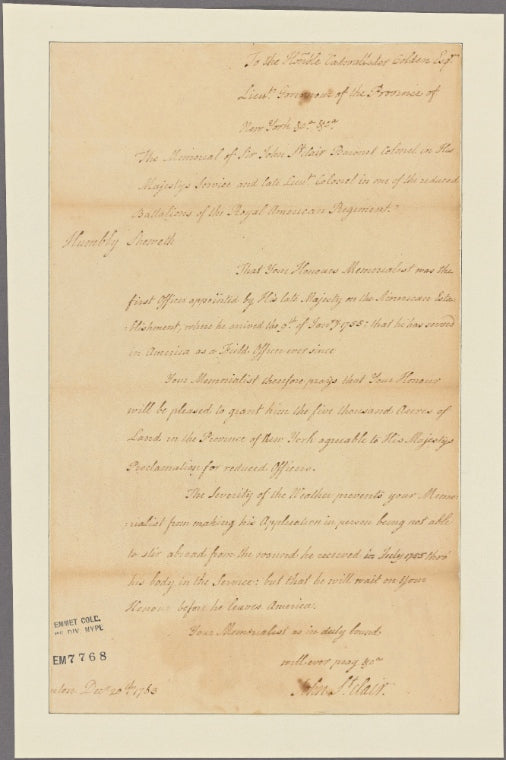 To the Honble Cadwallader Colden Esqr
Lieut. Governour of the Province of
New York &ca. &ca.
The Memorial of Sir John St. Clair Baronet Colonel in His
Majestys Service and late Lieut. Colonel in one of the reduced
Battalions of the Royal American Regiment.
Humbly Sheweth
That Your Honours Memorialist was the
first Officer appointed by His late Majesty on the American Esta
:blishment, where he arrived the of Janry. 1755: that he has served
in America as a Field Officer ever since
Your Memorialist therefore prays that Your Honour
will be pleased to grant him the five thousand Acres of
Land in the Province of New York agreable to His Majestys
Proclamation for reduced Officers.
The Severity of the Weather prevents your Memo
:rialist from making his Application in person being not able
to stir abroad from the wound he received in July 1755 thro'
his body in the Service: but that he will wait on Your
Honour before he leaves America.
Your Memorialist as in duty bound
will ever pray &ca
John St. Clair.
Decr. 20th. 1763
EMMET COLL.
MS DIV. NYPL
EM7768